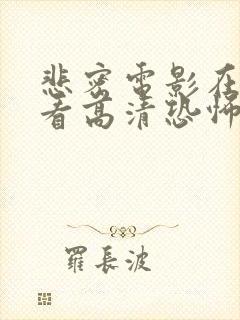 悲密电影在
看高清恐怖
羅長波